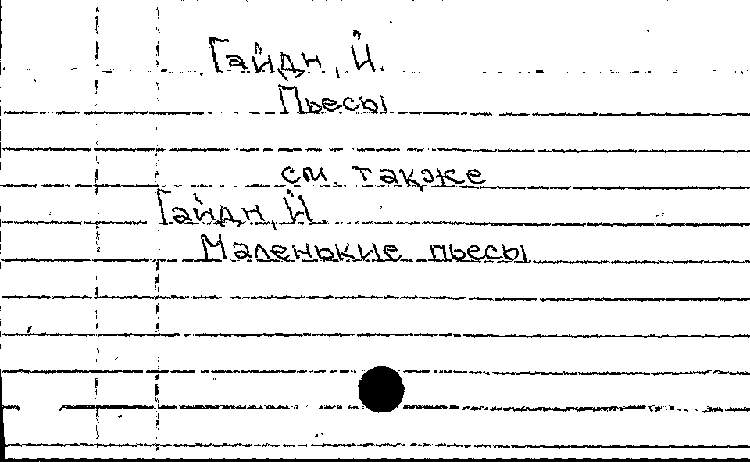 Гайдн, Й.
Пьесы
см. также
Гайдн, Й.
Маленькие пьесы